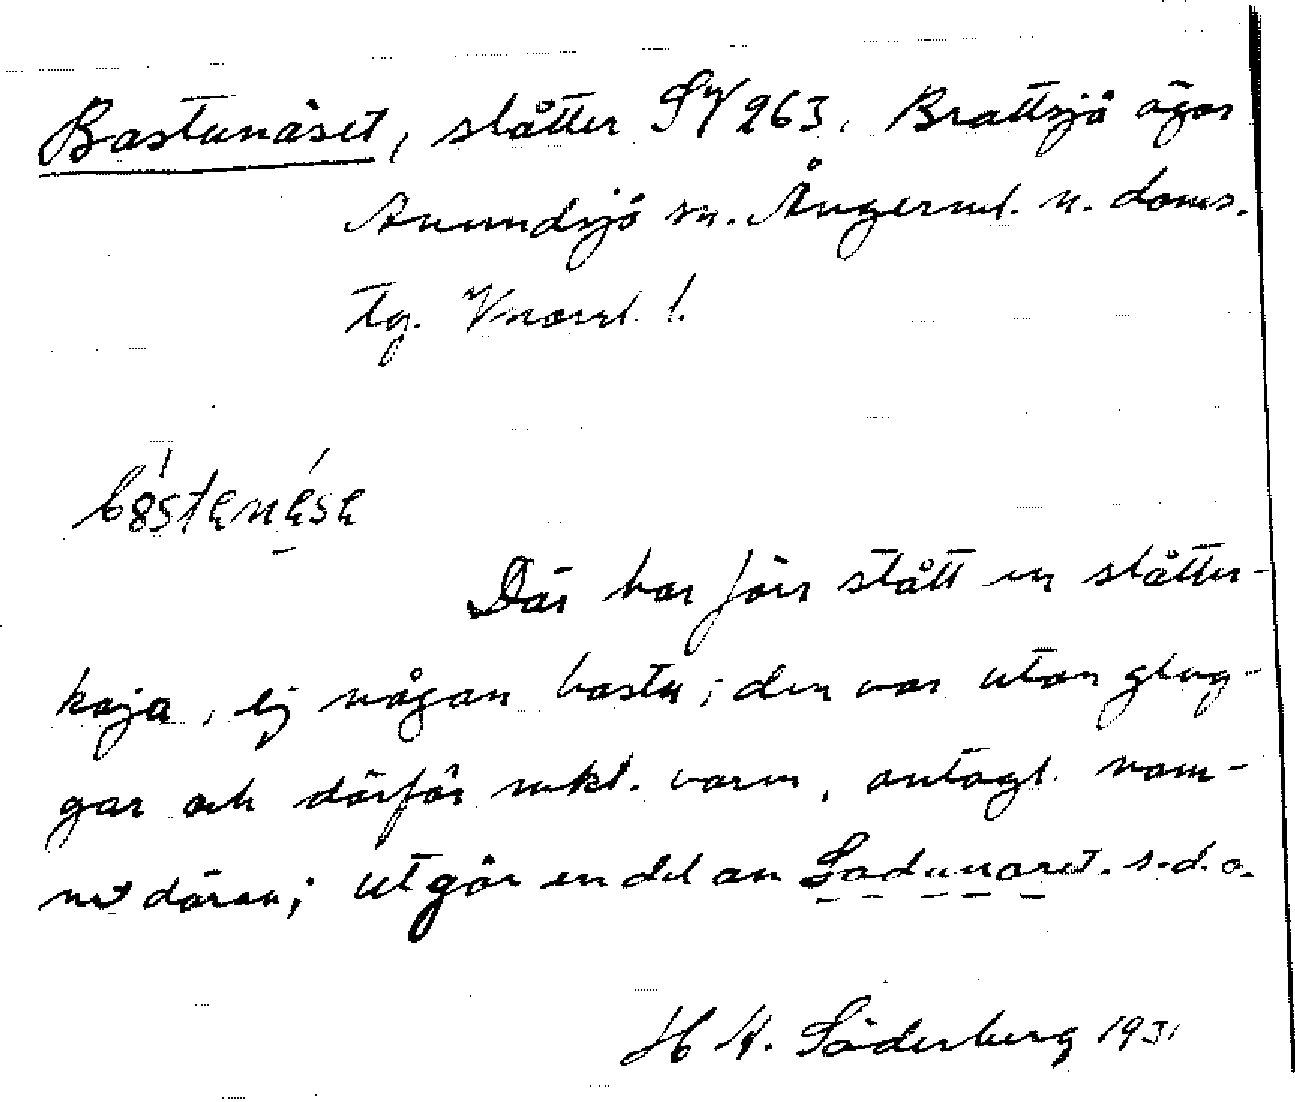 Bastunäset, slåtter SV 263, Brattsjö ägor
Anundsjö sn. Ångerml. n. doms.
tg. Vnorrl. l.
Där har förr stått en slåtter-
koja, ej någon bastu; den var utan glug-
gar och därför mkt. varm, antagl. nam-
net därav; utgör en del av s.d.o.
H A. Söderberg 1931